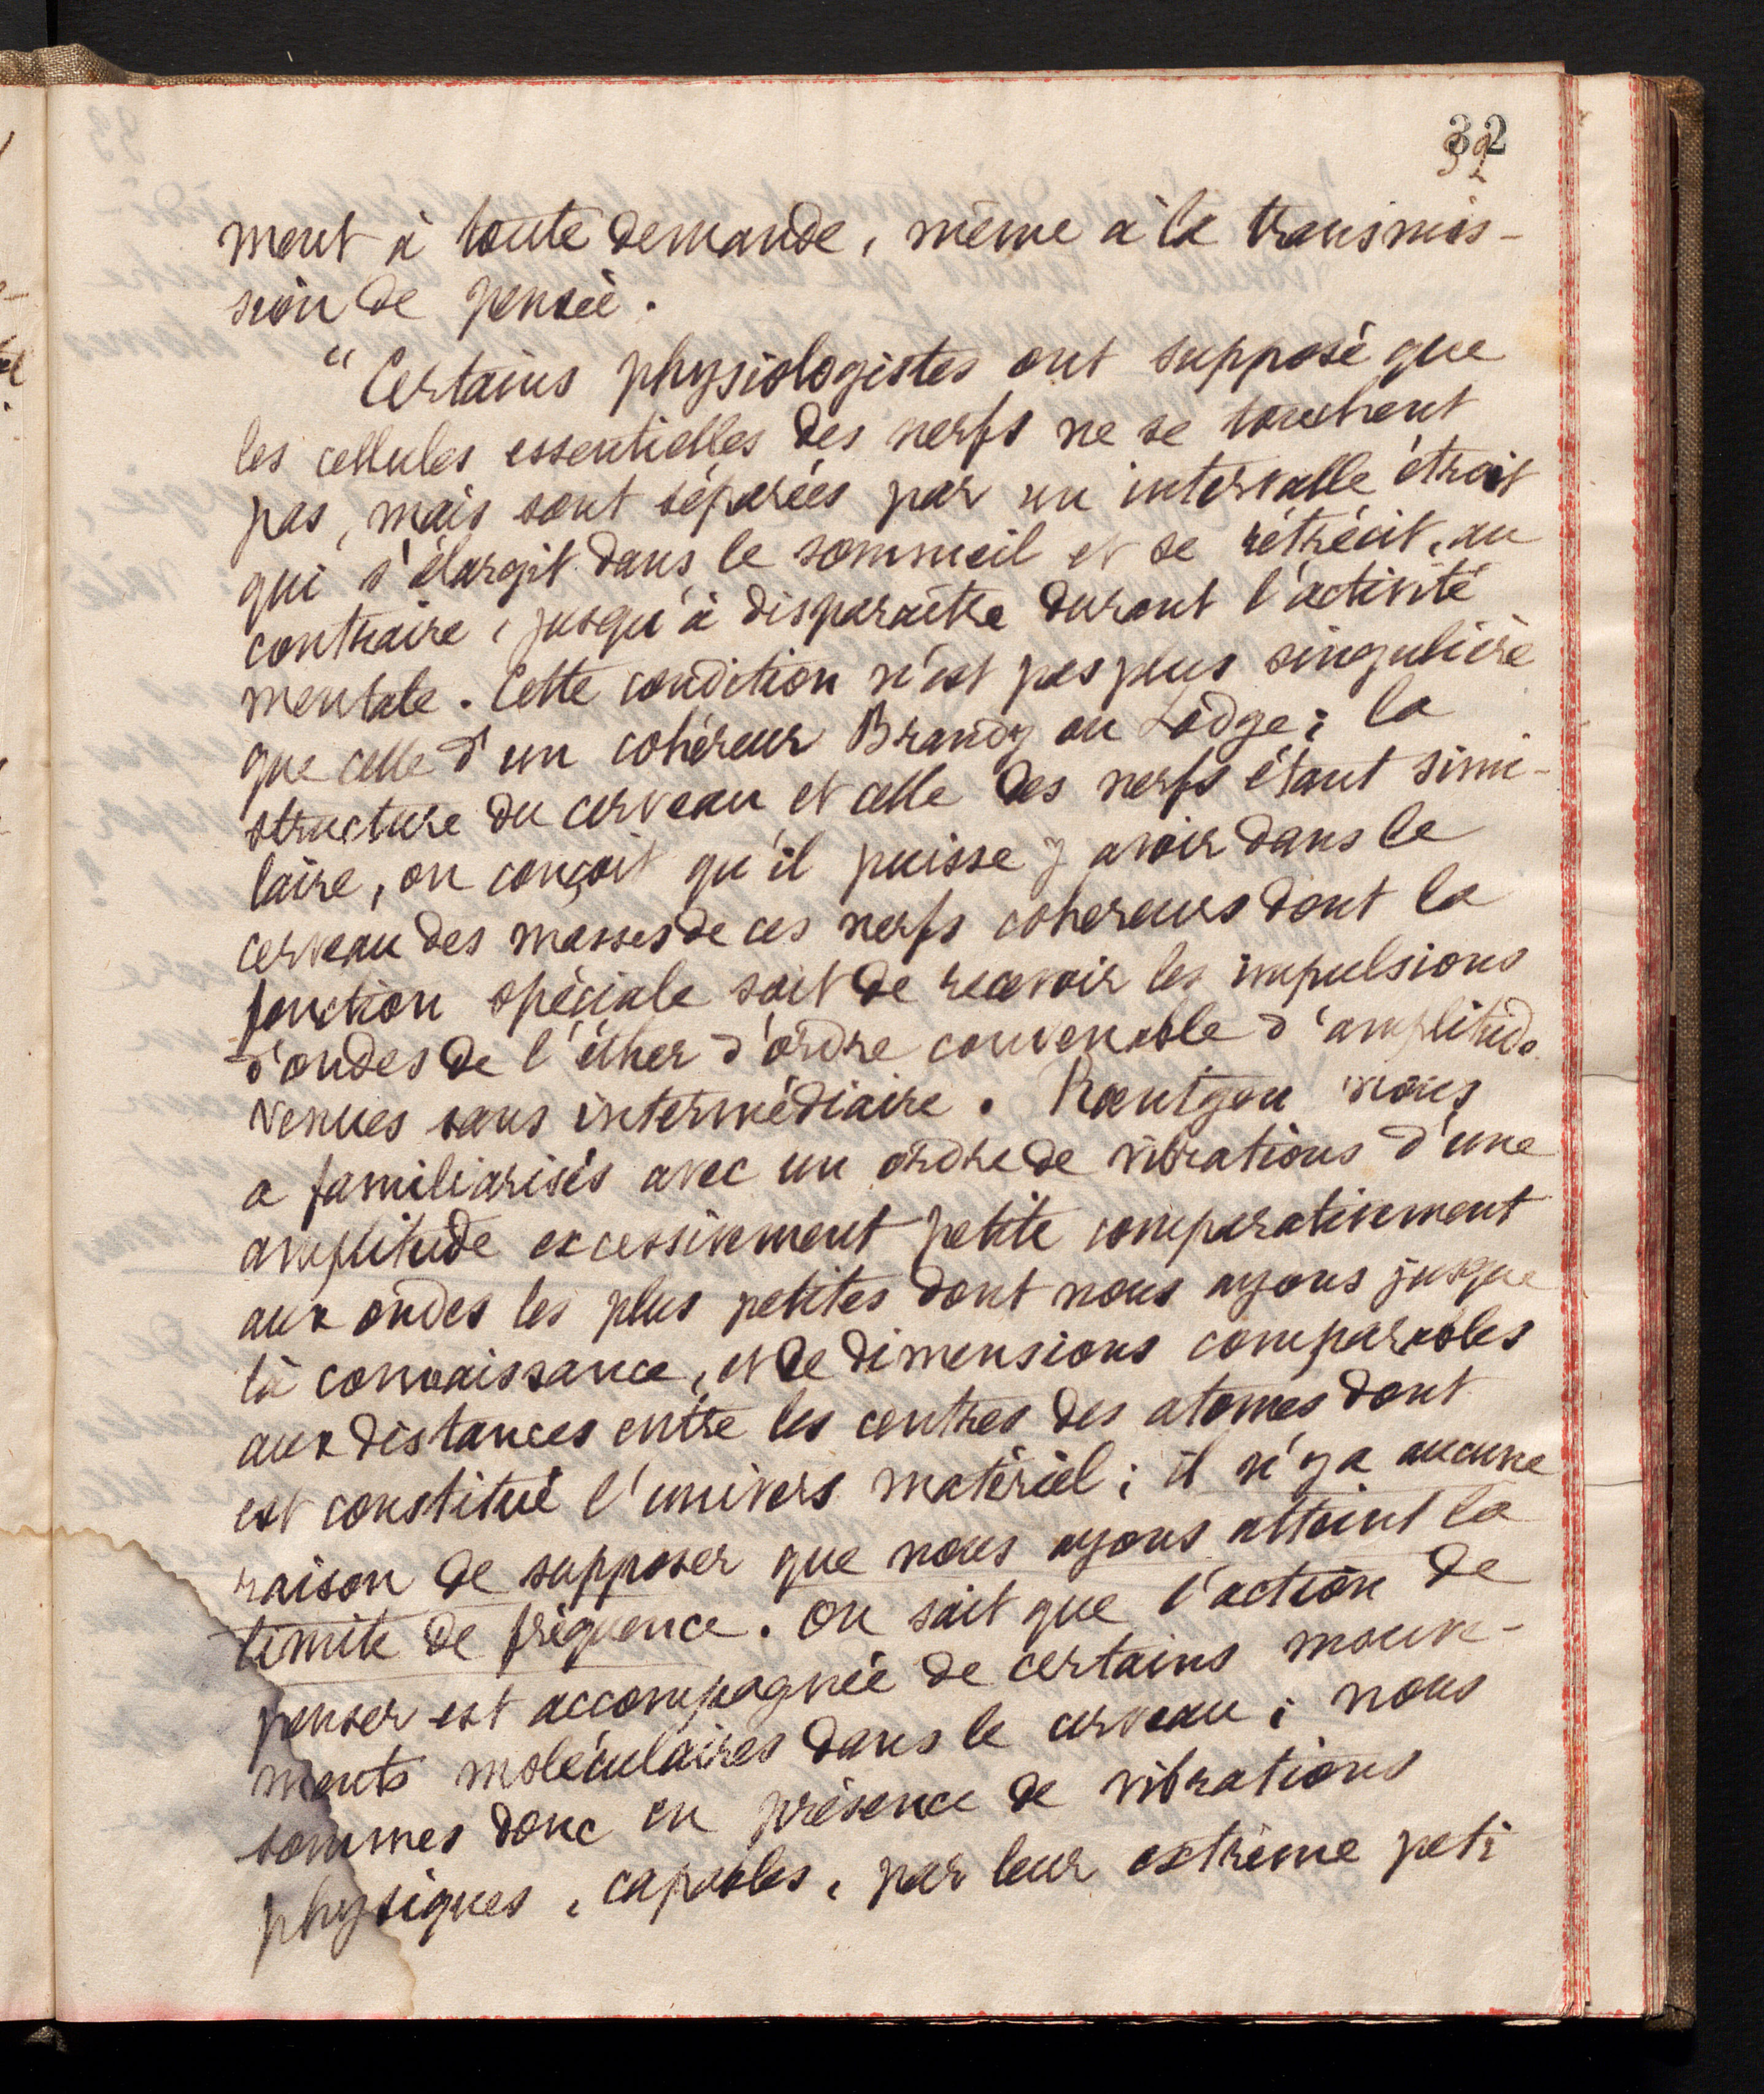 32
32
ment à toute demande, même à la transmis-
sion de pensée.
“ Certains physiologistes ont supposé que
les cellules essentielles des nerfs ne se touchent
pas, mais sont séparées par un intervalle étroit
qui s'élargit dans le sommeil et se rétrécit, au
contraire, jusqu'à disparaître durant l'activité
mentale. Cette condition n'est pas plus singulière
que celle d'un cohéreur Brandy ou Lodge ; la
structure du cerveau et celle des nerfs étant simi-
laire, on conçoit qu'il puisse y avoir dans le
cerveau des masses de ces nerfs cohereurs dont la
fonction spéciale soit de recevoir les impulsions
d'ondes de l'éther d'ordre convenable d'amplitude
venues sans intermédiaire. Rœntgen nous
a familiarisés avec un ordre de vibrations d'une
amplitude excessivement petite comparativement
aux ondes les plus petites dont nous ayons jusque
là connaissance, et de dimensions comparables
aux distances entre les centres des atomes dont
est constitué l'univers matériel ; il n'y a aucune
raison de supposer que nous ayons atteint la
limite de fréquence. On sait que l'action de
penser est accompagnée de certains mouve-
ments moléculaires dans le cerveau ; nous
sommes donc en présence de vibrations
physiques, capables, par leur extrême peti